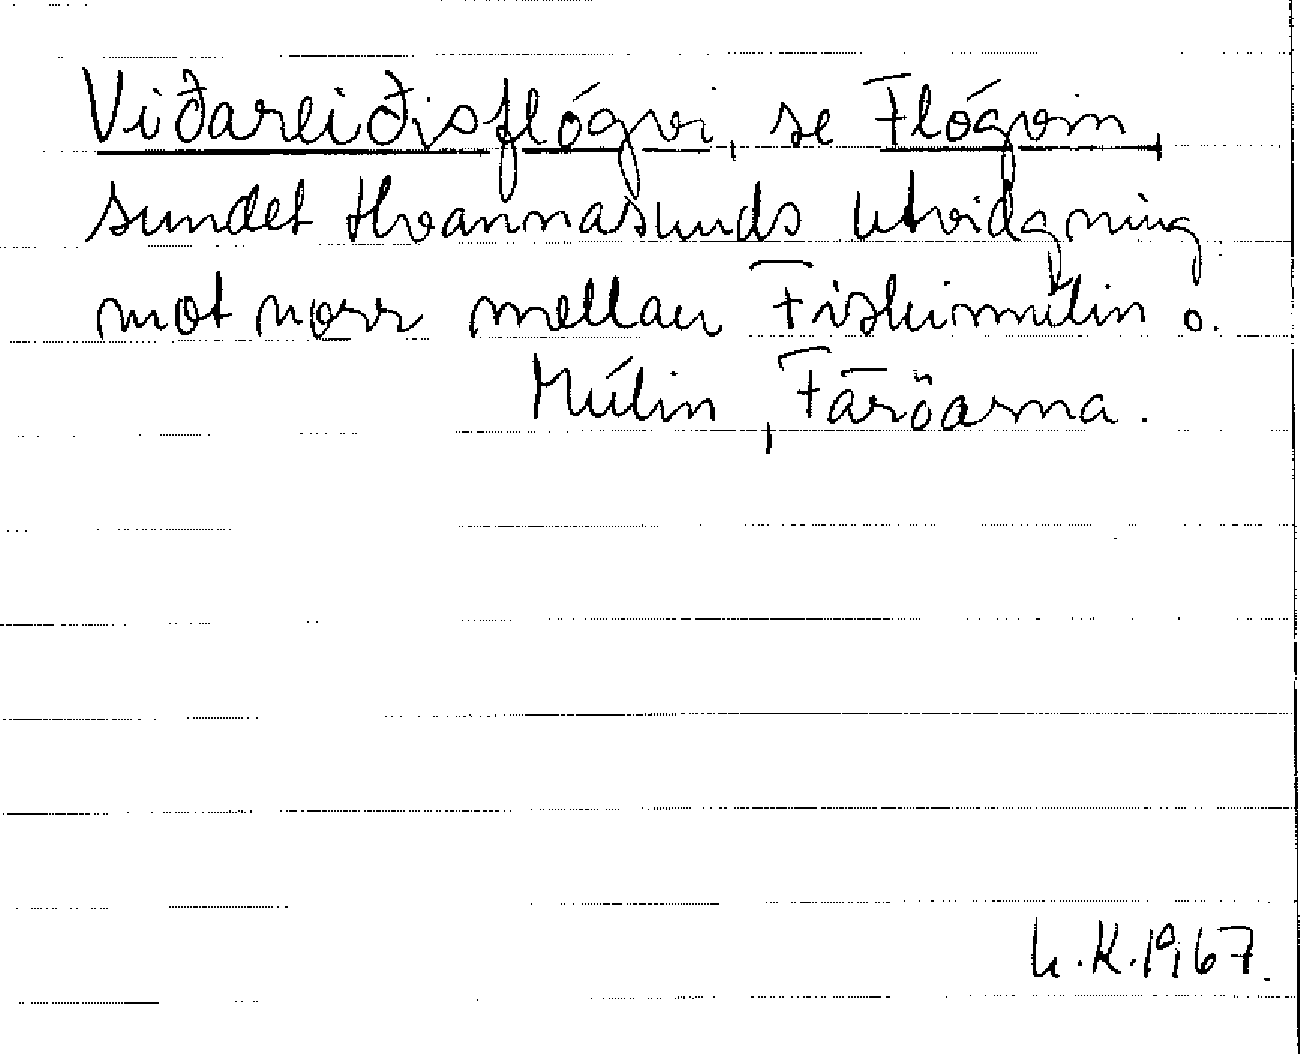 Viðareiðisflógvi, se Flógvin,
sundet Hvannasunds utvidgning
mot norr mellan Fiskimúlin o.
Múlin, Färöarna.
L.K.1967.